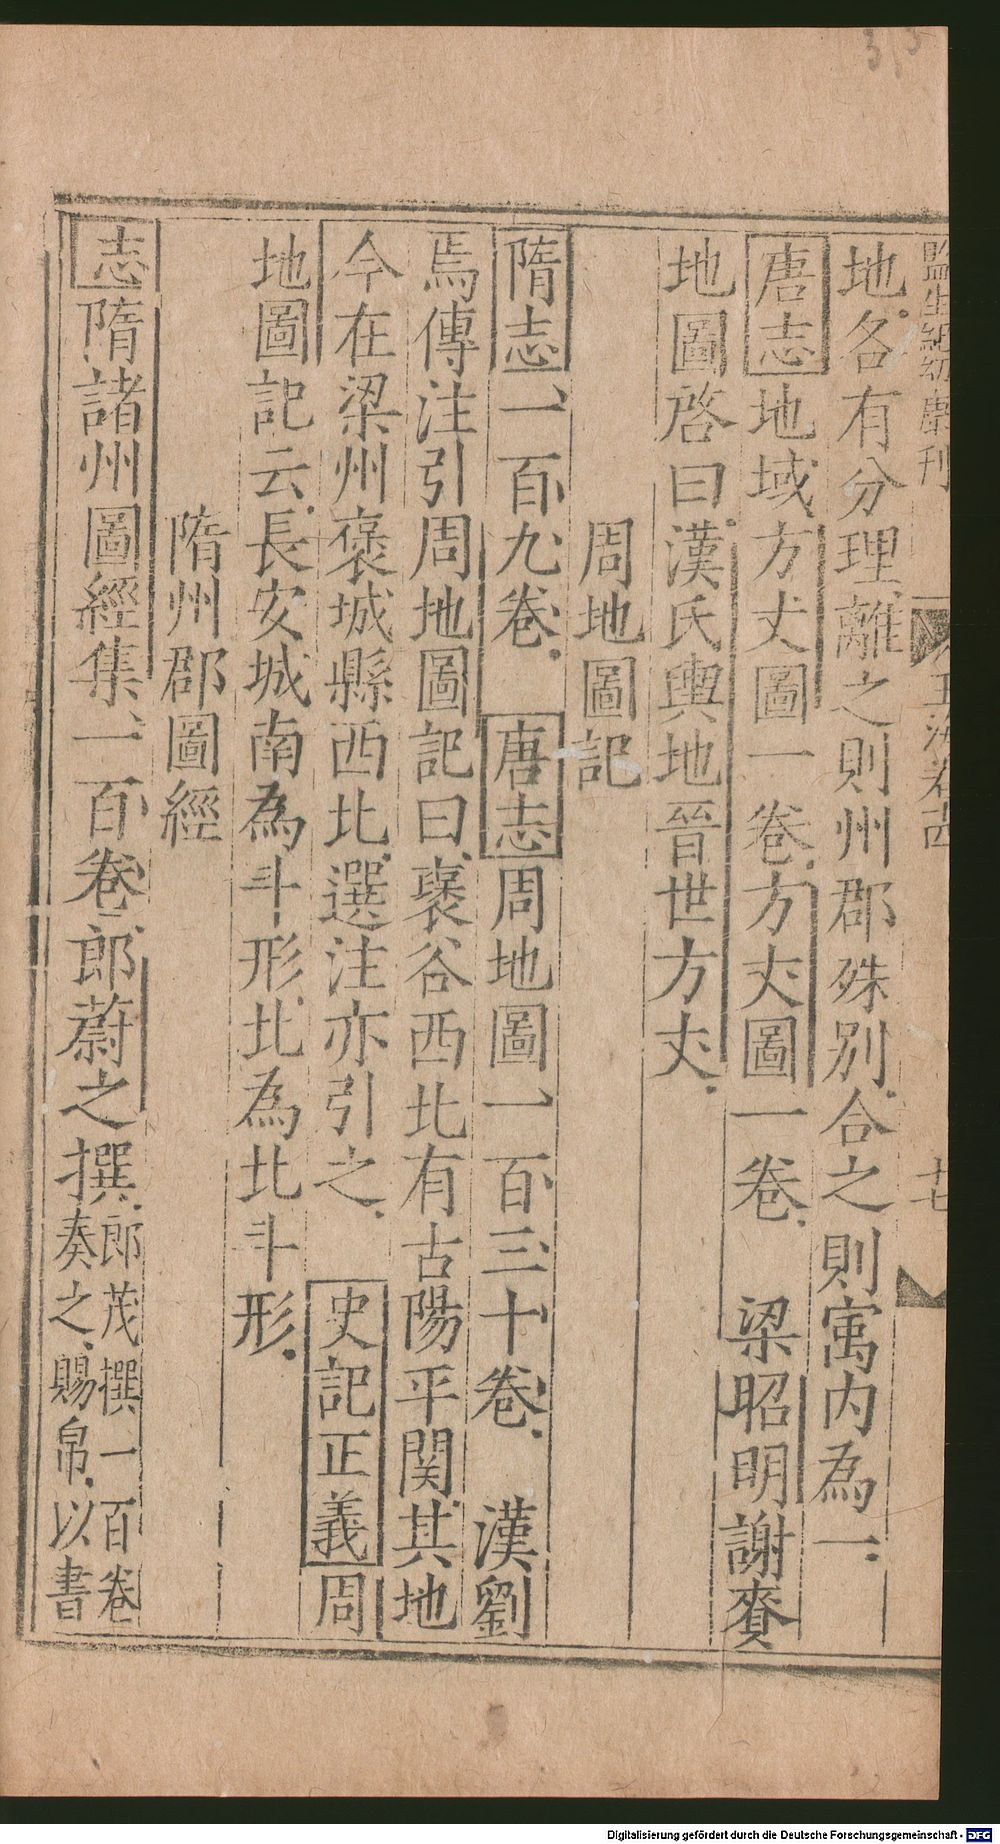 地各有分理離之則州郡殊別合之則寓内為一
唐志地域方丈圖一卷方丈圖一卷 梁昭明謝賚
地圖啓曰漢氏輿地晉世方丈
周地圖記
隋志一百九卷 唐志周地圖一百三十卷 漢劉
焉傳注引周地圖記曰褒谷西北有古陽平關其地
今在梁州褒城縣西北選注亦引之 史記正義周
地圖記云長安城南為斗形北為北斗形
隋州郡圖經
志隋諸州圖經集一百卷郎蔚之撰郎茂撰一百卷
奏之賜帛以書
Digitalisierung gefördert durch die Deutsche Forschungsgemeinschaft - DFG